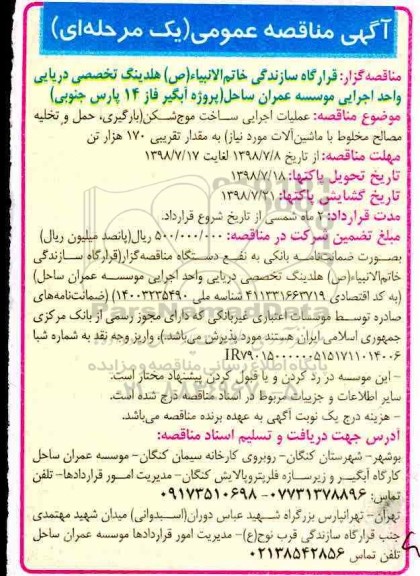 آگهی مناقصه عمومی(یک مرحله‌ای)
مناقصه‌گزار: قرارگاه سازندگی خاتم‌الانبیاء(ص) هلدینگ تخصصی دریایی
واحد اجرایی موسسه عمران ساحل(پروژه آبگیر فاز ۱۴ پارس جنوبی)
موضوع مناقصه: عملیات اجرایی ساخت موج‌شکن(بارگیری، حمل و تخلیه
مصالح مخلوط با ماشین‌آلات مورد نیاز) به مقدار تقریبی ۱۷۰ هزار تن
مهلت مناقصه: از تاریخ ۱۳۹۸/۷/۸ لغایت ۱۳۹۸/۷/۱۷
تاریخ تحویل پاکتها: ۱۳۹۸/۷/۱۸
تاریخ گشایش پاکتها: ۱۳۹۸/۷/۲۱
مدت قرارداد: ۲ ماه شمسی از تاریخ شروع قرارداد.
مبلغ تضمین شرکت در مناقصه: ۵۰۰/۰۰۰/۰۰۰ ریال(پانصد میلیون ریال)
بصورت ضمانت‌نامه بانکی به نفع دستگاه مناقصه‌گزار(قرارگاه سازندگی
خاتم‌الانبیاء(ص) هلدینگ تخصصی دریایی واحد اجرایی موسسه عمران ساحل)
(به کد اقتصادی ۴۱۱۳۳۱۶۶۳۷۱۹ شناسه ملی ۱۴۰۰۳۲۳۵۴۹۰) (ضمانت‌نامه‌های
صادره توسط موسسات اعتباری غیربانکی که دارای مجوز رسمی از بانک مرکزی
جمهوری اسلامی ایران هستند مورد پذیرش می‌باشد.)، واریز وجه نقد به شماره شبا
IR۷۹۰۱۵۰۰۰۰۰۰۵۱۵۱۷۱۱۰۱۴۰۰۶
- این موسسه در رد کردن و یا قبول کردن پیشنهاد مختار است.
- سایر اطلاعات و جزییات مربوط در اسناد مناقصه درج شده است.
- هزینه درج یک نوبت آگهی به عهده برنده مناقصه می‌باشد.
آدرس جهت دریافت و تسلیم اسناد مناقصه:
بوشهر- شهرستان کنگان- روبروی کارخانه سیمان کنگان- موسسه عمران ساحل
کارگاه آبگیر و زیرسازه فلرپتروپالایش کنگان- مدیریت امور قراردادها- تلفن
تماس: ۰۷۷۳۱۳۷۸۸۹۶ - ۰۹۱۷۳۵۱۰۶۹۸
تهران- تهرانپارس بزرگراه شهید عباس دوران(اسبدوانی) میدان شهید مهتمدی
جنب قرارگاه سازندگی قرب نوح(ع)- مدیریت امور قراردادها موسسه عمران ساحل
تلفن تماس ۰۲۱۳۸۵۴۲۸۵۶